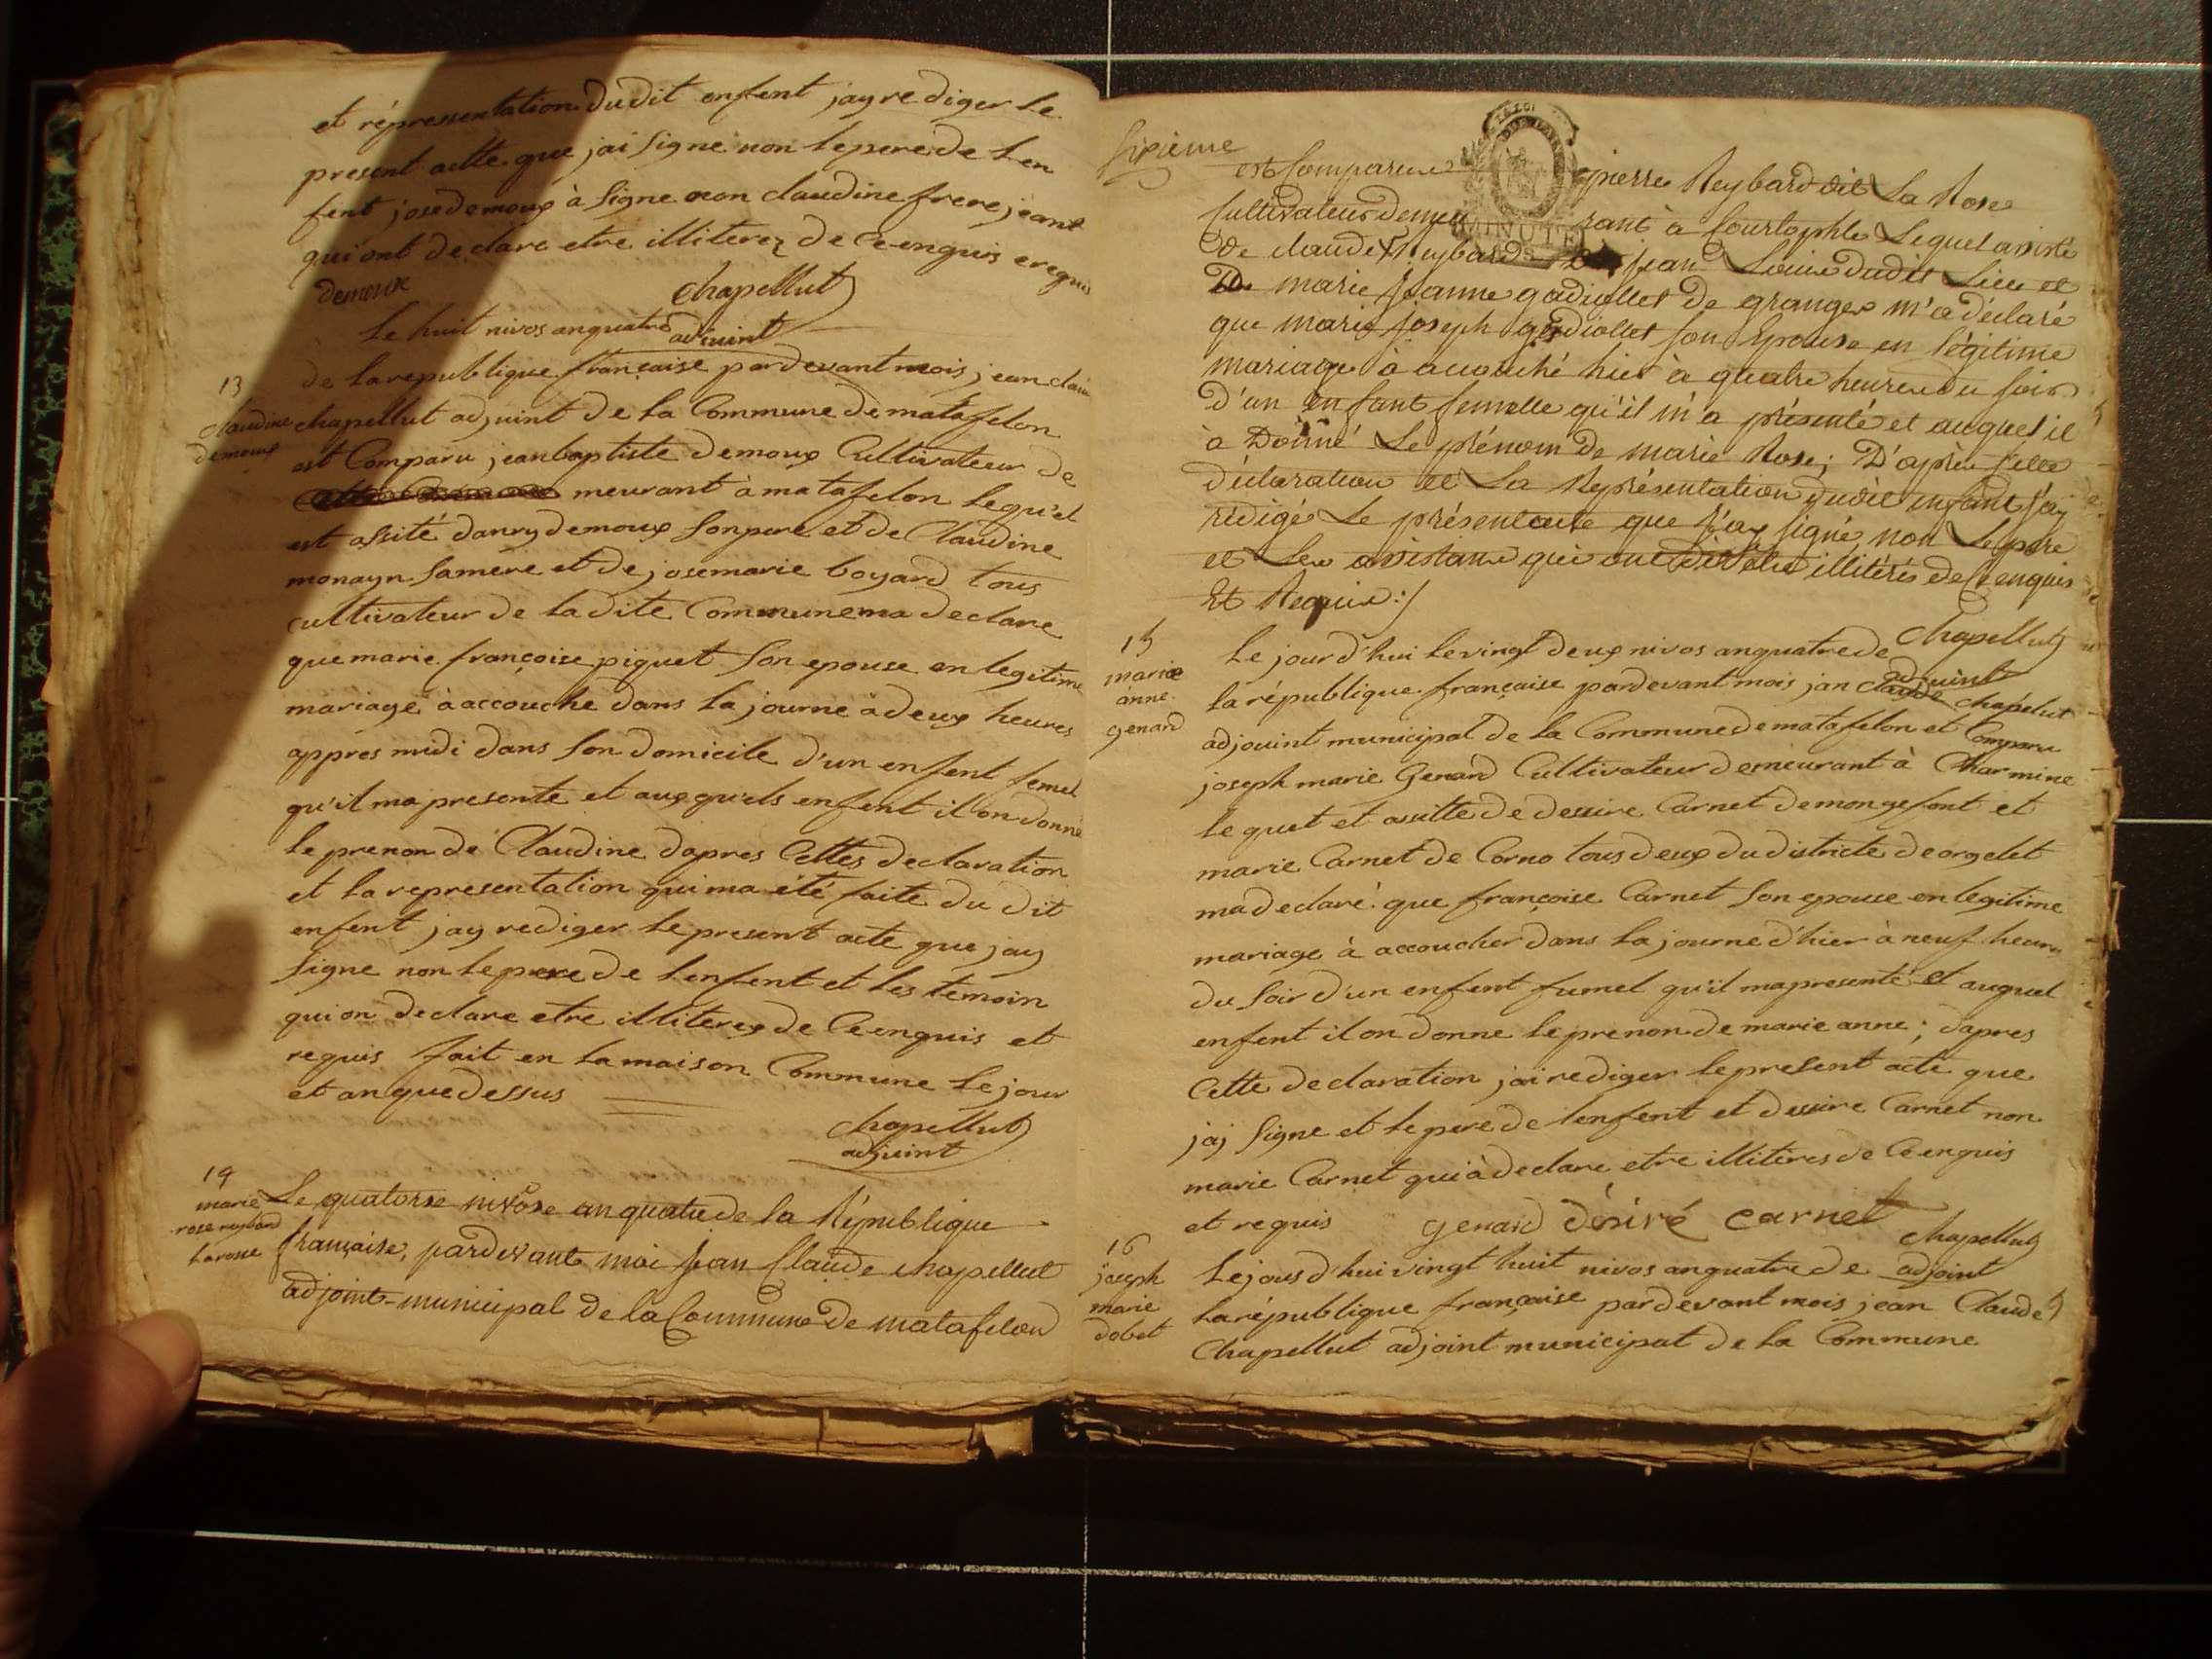 et répressentation dudit enfent jay rediger le
present actte que jai signe non le pere de len
fent jose demoux à signe non claudine frere jeant
qui ont declare etre illiterez de ce enquis e requis
demoux chapellut
adjuint
Le huit nivos an quatre
13
claudine
demoux
de la republique française pardevant mois jean clau
chapellut adjuint de la Commune de matafelon
est Comparu jean baptiste demoux Cultivateur de
meurant à matafelon lequ'el
est assité danry demoux son pere et de Claudine
monayn sa mère et de jose marie boyard tous
cultivateur de la dite Commune ma declare
que marie françoise piquet son epouse en legitime
mariage à accouche dans la journe à deux heures
appres midi dans son domicile d'un enfent femel
qu'il ma presente et auxqu'els enfent il on donne
le prenon de Claudine dapres Cettes declaration
et la representation qui ma été faite du dit
enfent jay rediger le present acte que jay
signe non le pere de lenfent et les temoin
qui on declare etre illiterex de Ce enquis et
requis fait en la maison Commune le jour
et an que dessus
chapellut
adjuint
14
marie
rose reybard
larosse
Le quatorse nivôse an quatre de la République
française, pardevant moi jean Claude chapellut
adjoint-municipal de la Commune de matafelon
sixieme
est Comparu pierre Reybard dit La Rose
Cultivateur demeurant à Courtophle Lequel assisté
MINUTE
de claude Reybard jean Louis dudit Lieu et
De marie jeanne gadiollet de granges m'a déclaré
que marie joseph gadiollet son Epouse en légitime
mariage à accouché hier à quatre heures du soir
D'un enfant femelle qu'il m'a présenté et auquel il
à Donné Le prénom De marie Rose; D'après celle
déclaration et La Représentation dudit enfant j'ay
rédigé Le présent acte que j'ay signé, non Le père
et Les assistans qui ont dit être illitérés de Ce enquis
Et Requis :/
Chapellut
adjuint
15
marie
anne
genard
Le jour d'hui le vingt deux nivos an quatre de
la république française pardevant mois jan claude chapelut
adjouint municipal de la Commune de matafelon et Comparu
joseph marie Genard Cultivateur demeurant à Charmine
le quet et assitte de dessire Carnet demongefont et
marie Carnet de Corno tous deux du districte de orgelet
ma declaré que françoise Carnet son epouse en legitime
mariage à accoucher dans la journe d'hier à neuf heures
du soir d'un enfent fumel qu'il ma presenté et auquel
enfent il on donne le prenon de marie anne; dapres
Cette declaration jai rediger le present acte que
jaj signe et le pere de lenfent et dessire Carnet non
marie Carnet qui à declare etre illitères de Ce enquis
et requis genard désiré carnet
Chapellut
adjoint
16
joseph
marie
dobet
Le jous d'hui vingt huit nivos an quatre de
la république française pardevant mois jean Claude
Chapellut adjoint municipal de la Commune